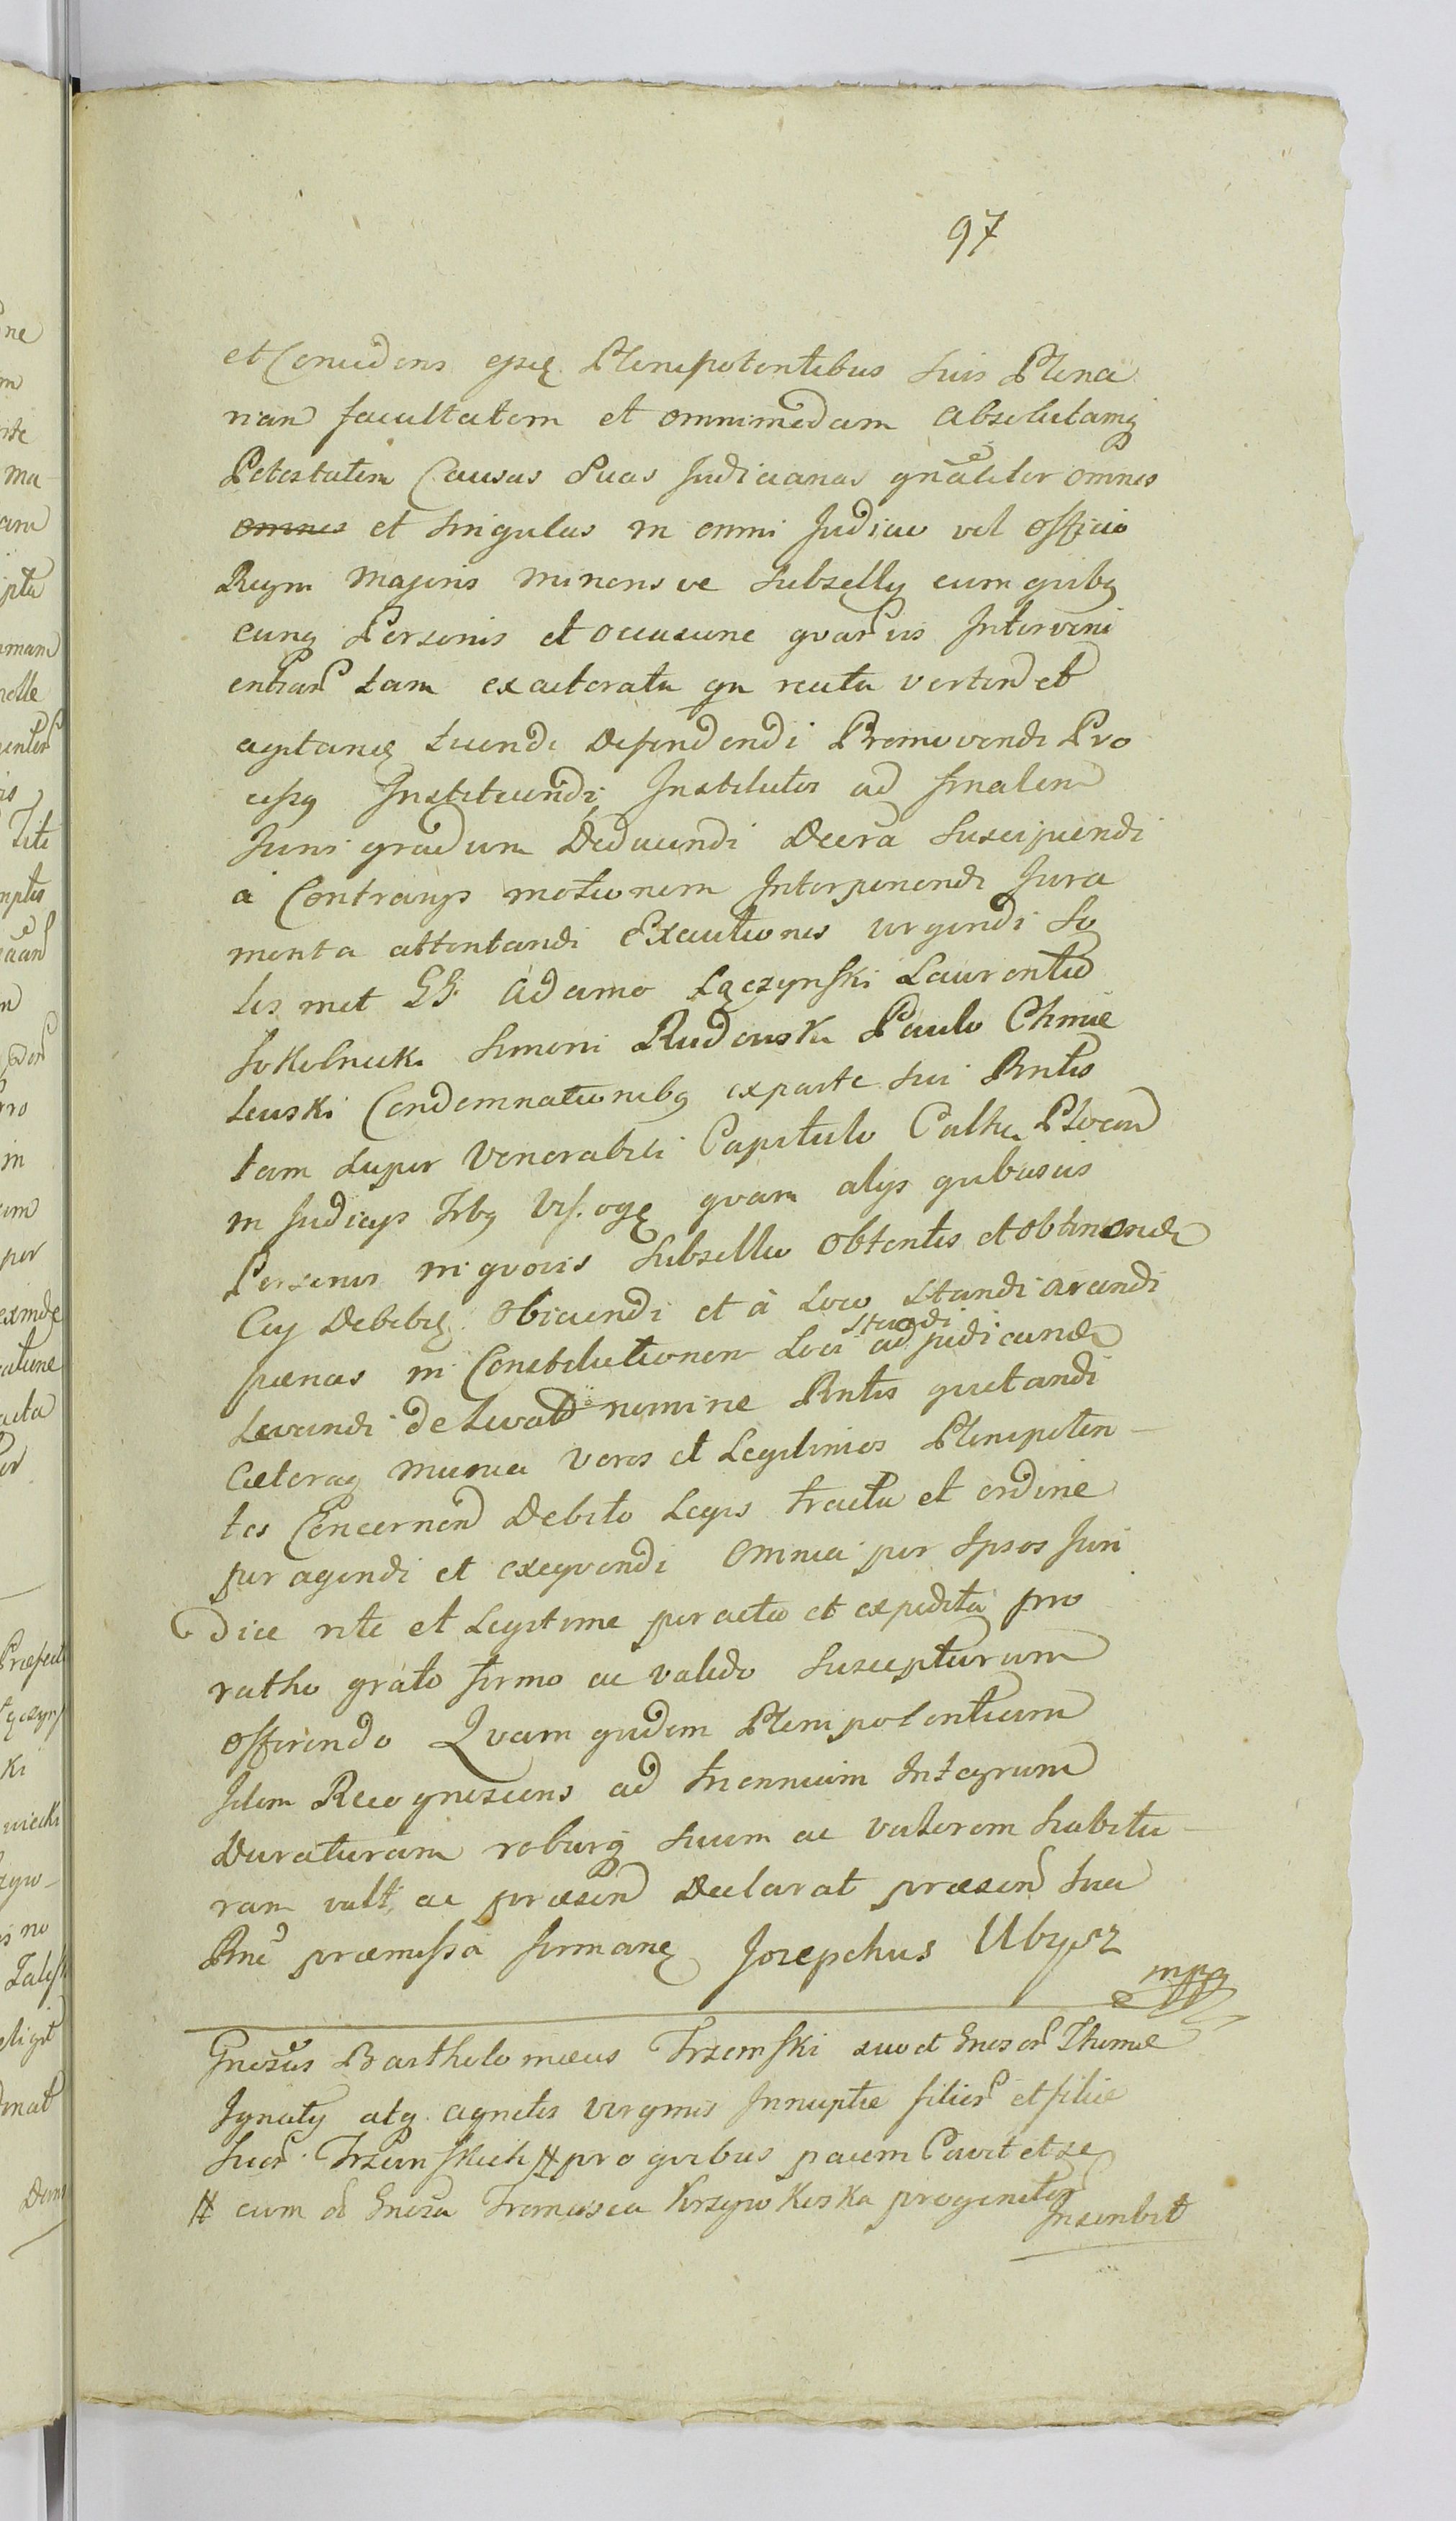 97
et Concedens ejsq Plenipotentibus suis Plena
riam facultatem et omnimodam absolutamq
Potestatem Causas Suas Judiciarias gnaliter omnes
omnes et singulas in omni Judicio vel officio
Regni Majoris minoris ve subsellij cum quibq
cunq Personis et occasione quarvis Interveni
entiarum tam exactorata qu reatu vertend et
agitand tuendi Defendendi Promovendi Pro
cessq Instituendi, Institutos ad finalem
Juris gradum Deducendi Decra Suscipiendi
à Contrarijs motionem Interponendi Jura
menta attentandi Executiones urgendi So
lis met GG. Adamo Łączynski Laurentio
Sokolnicki Simoni Rudowski Paulo Chmie
lewski Condemnationibq ex parte sui Pntis
tam super Venerabili Capitulo Cathe Plocen
in Judicijs Trbq quam alijs quibusvis
Personis in quovis Subsellio obtentis et obtinendis
Obiciendi et à Loco Standi arcendi
pænas in Constitutionem Loci standi adjudicandi
Levandi de Levatis nomine Pntis quietandi
Cæteraq munia veros et Legitimos Plenipoten
tes Concernen Debito Legis tractu et ordine
per agendi et exequendi Omnia per Ipsos Juri
dice rite et Legitime peracta et expedita pro
ratho grato firmo ac valido Suscepturum
offerendo Quam quidem Plenipotentiam
Idem Recognoscens ad triennium Integrum
Duraturam roburq suum ac valorem habitu
ram vult, ac præsen Declarat præsen sua
Rne præmissa firmanq Josephus Ubysz
mpp
Gnosus Bartholomæus Trzemski suo et Gnosor Thomæ
Ignatij atq Agnetis virginis Innuptæ filior et filiæ
Suor Trzemskich # pro quibus pacem Cavit et se
# cum ol Gnosa Francisca Krzywkoska progenitor
Inscribit